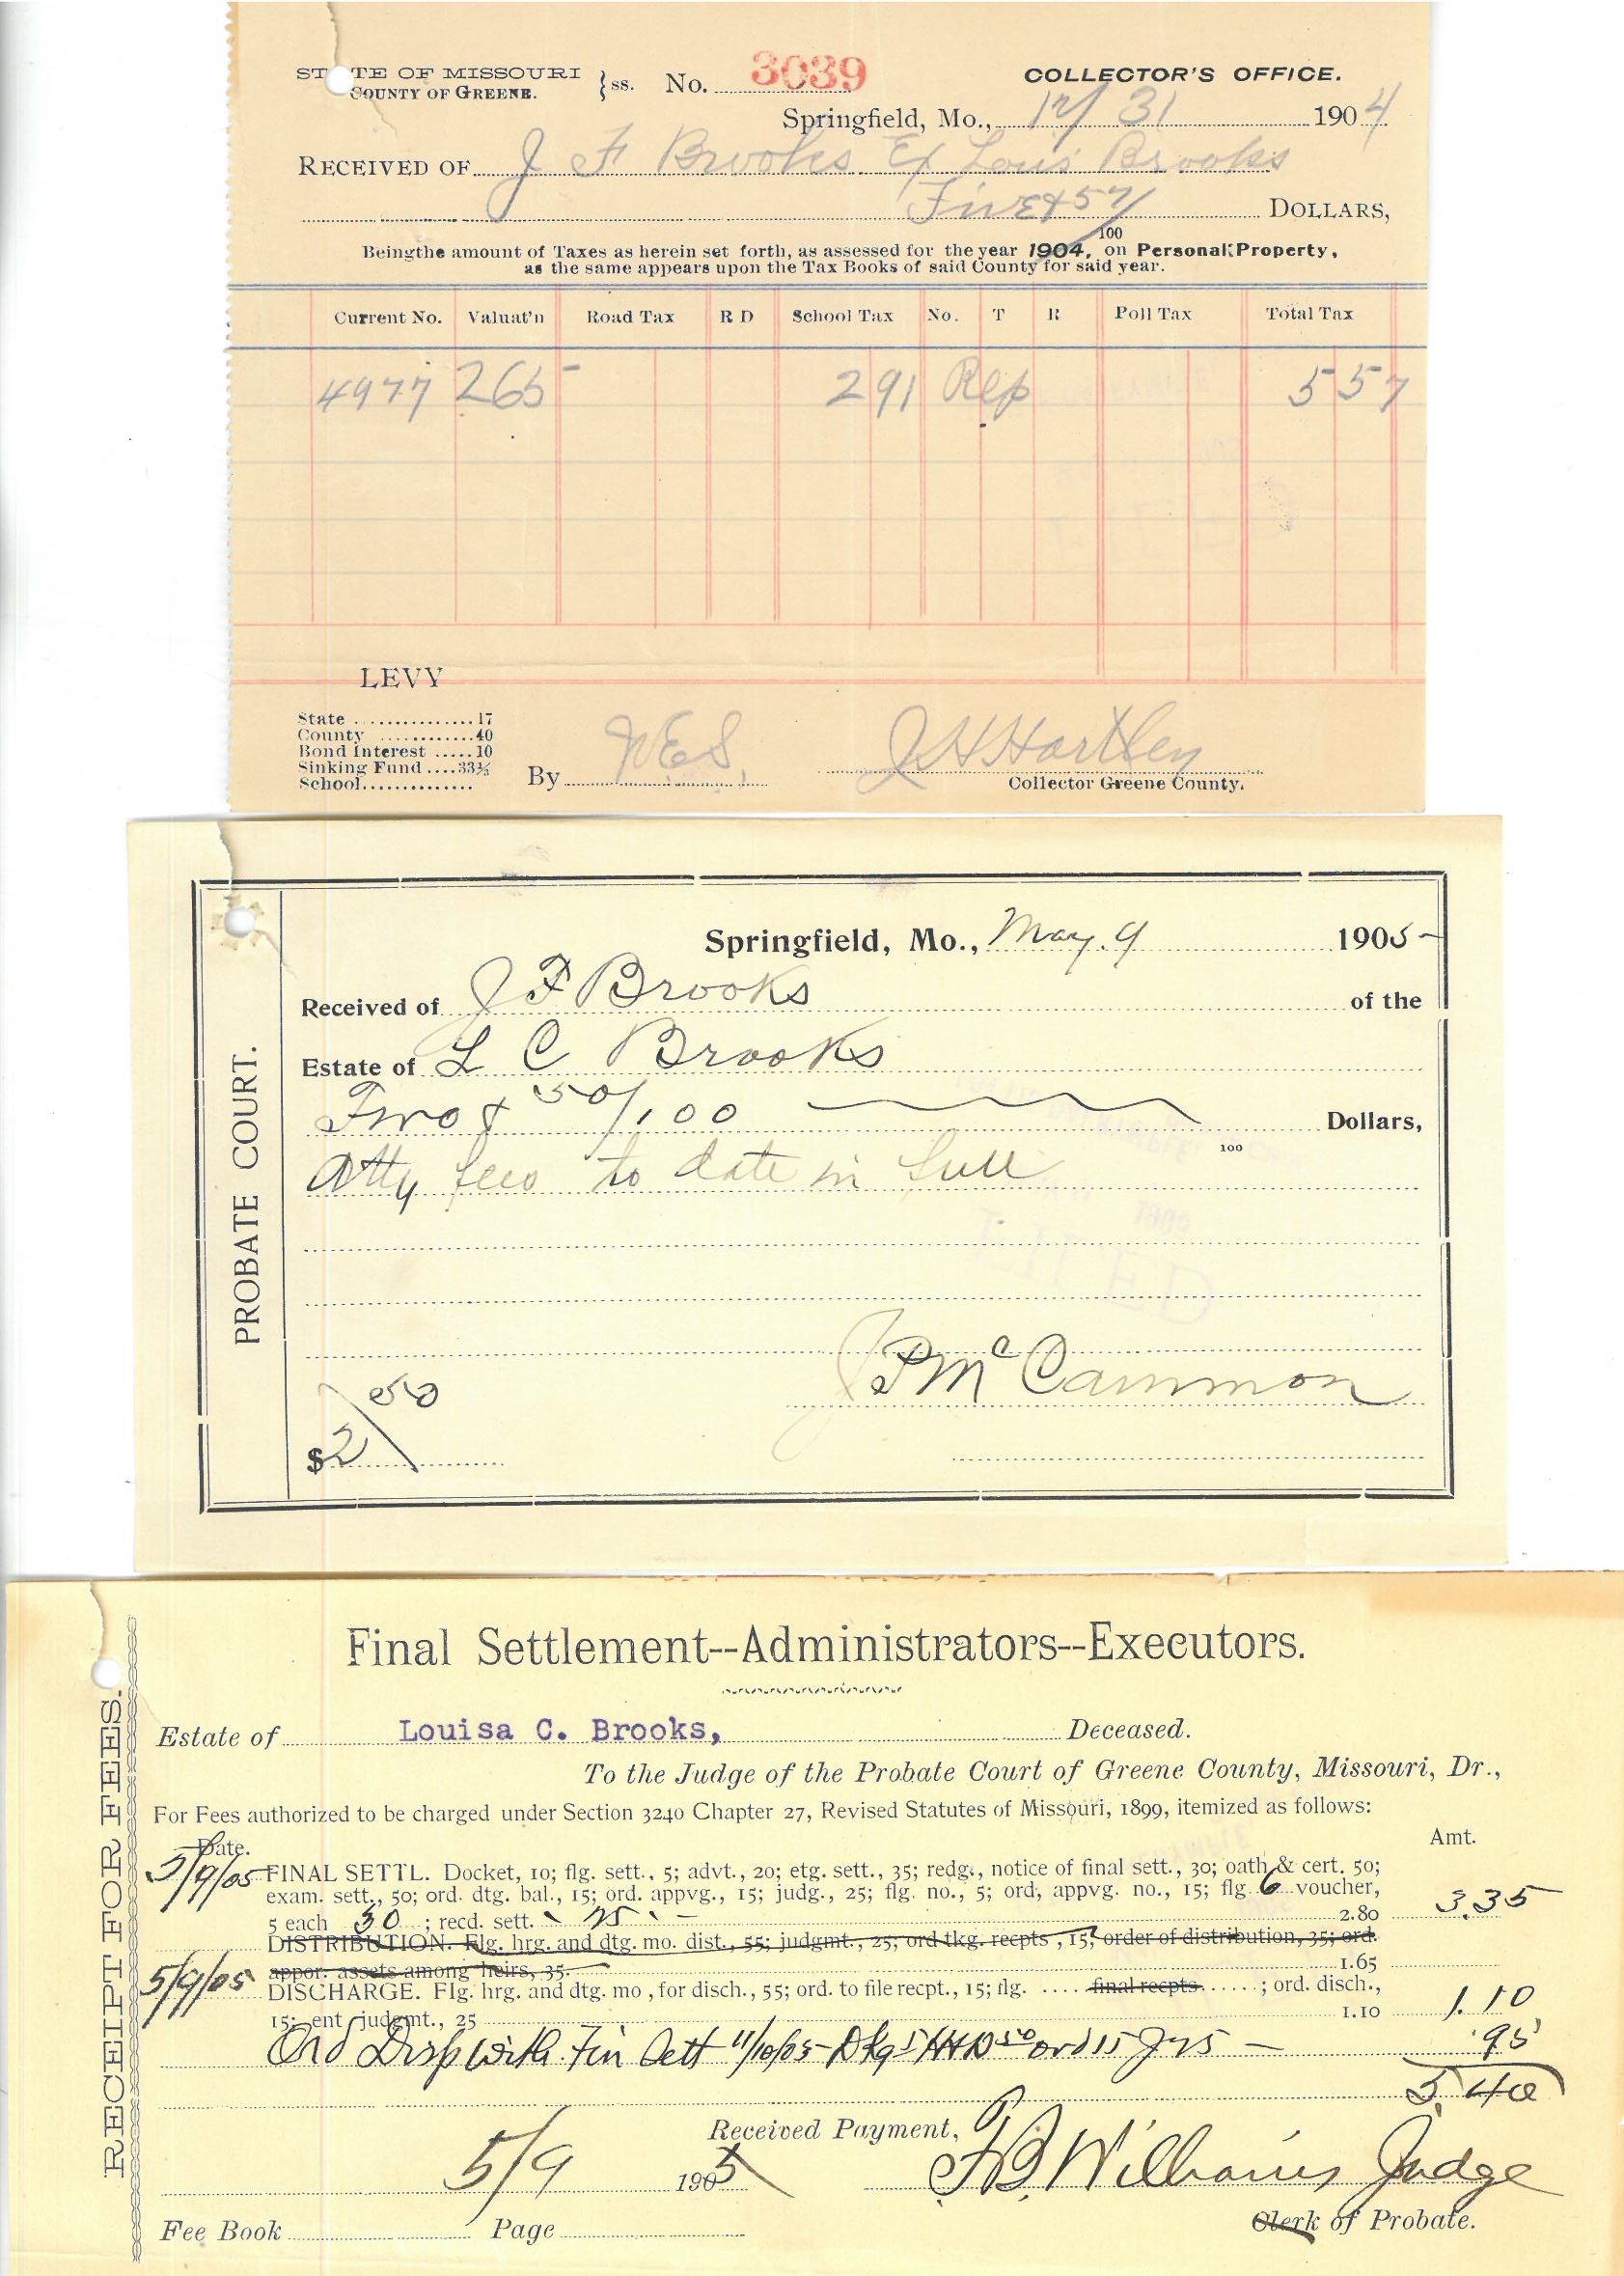 STATE OF MISSOURI
COUNTY OF GREENE. } ss. No. 3039 COLLECTOR'S OFFICE.
Springfield, Mo., 12/31 1904
RECEIVED OF J F Brooks Ex Louis Brooks
Five & 57/100 DOLLARS,
Beingthe amount of Taxes as herein set forth, as assessed for the year 1904, on Personal Property,
as the same appears upon the Tax Books of said County for said year.
Current No. Valuat'n Road Tax R D School Tax No. T R Poll Tax Total Tax
4977 265 291 Rep 5 57
LEVY
State ............... 17
County ............ 40
Bond Interest ..... 10
Sinking Fund .... 33⅓
School ..............
By W.E.S. J H Hartley
Collector Greene County.
PROBATE COURT.
Springfield, Mo., May. 9 1905
Received of J F Brooks of the
Estate of L C Brooks
Two & 50/100 Dollars,
100
Atty fees to date in full
J P McCammon
$2 50
RECEIPT FOR FEES.
Final Settlement--Administrators--Executors.
Estate of Louisa C. Brooks, Deceased.
To the Judge of the Probate Court of Greene County, Missouri, Dr.,
For Fees authorized to be charged under Section 3240 Chapter 27, Revised Statutes of Missouri, 1899, itemized as follows:
Date. Amt.
5/9/05 FINAL SETTL. Docket, 10; flg. sett., 5; advt., 20; etg. sett., 35; redg., notice of final sett., 30; oath & cert. 50;
exam. sett., 50; ord. dtg. bal., 15; ord. appvg., 15; judg., 25; flg. no., 5; ord, appvg. no., 15; flg. 6 voucher,
5 each 30 ; recd. sett. 25 2.80 3.35
DISTRIBUTION. Flg. hrg. and dtg. mo. dist., 55; judgmt., 25; ord tkg. recpts, 15; order of distribution, 35; ord.
appor. assets among heirs, 35. 1.65
5/9/05 DISCHARGE. Flg. hrg. and dtg. mo, for disch., 55; ord. to file recpt., 15; flg. .... final recpts. ..... ; ord. disch.,
15; ent judgmt., 25 1.10 1.10
Ord Disp with Fin Sett 11/10/05 Dkg 5 50 ord 15 J 25 .95
5.40
Received Payment,
5/9 1905 Williams Judge
Fee Book Page Clerk of Probate.